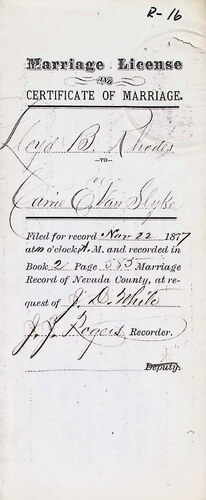 R-16
Marriage License
AND
CERTIFICATE OF MARRIAGE.
Lloyd B. Rhodes
—TO—
Carrie E. Van Slyke
Filed for record Nov 22 1877
at o'clock A. M. and recorded in
Book 2 Page 555 Marriage
Record of Nevada County, at re-
quest of J. D. White
J. J. Rogers Recorder.
Deputy.